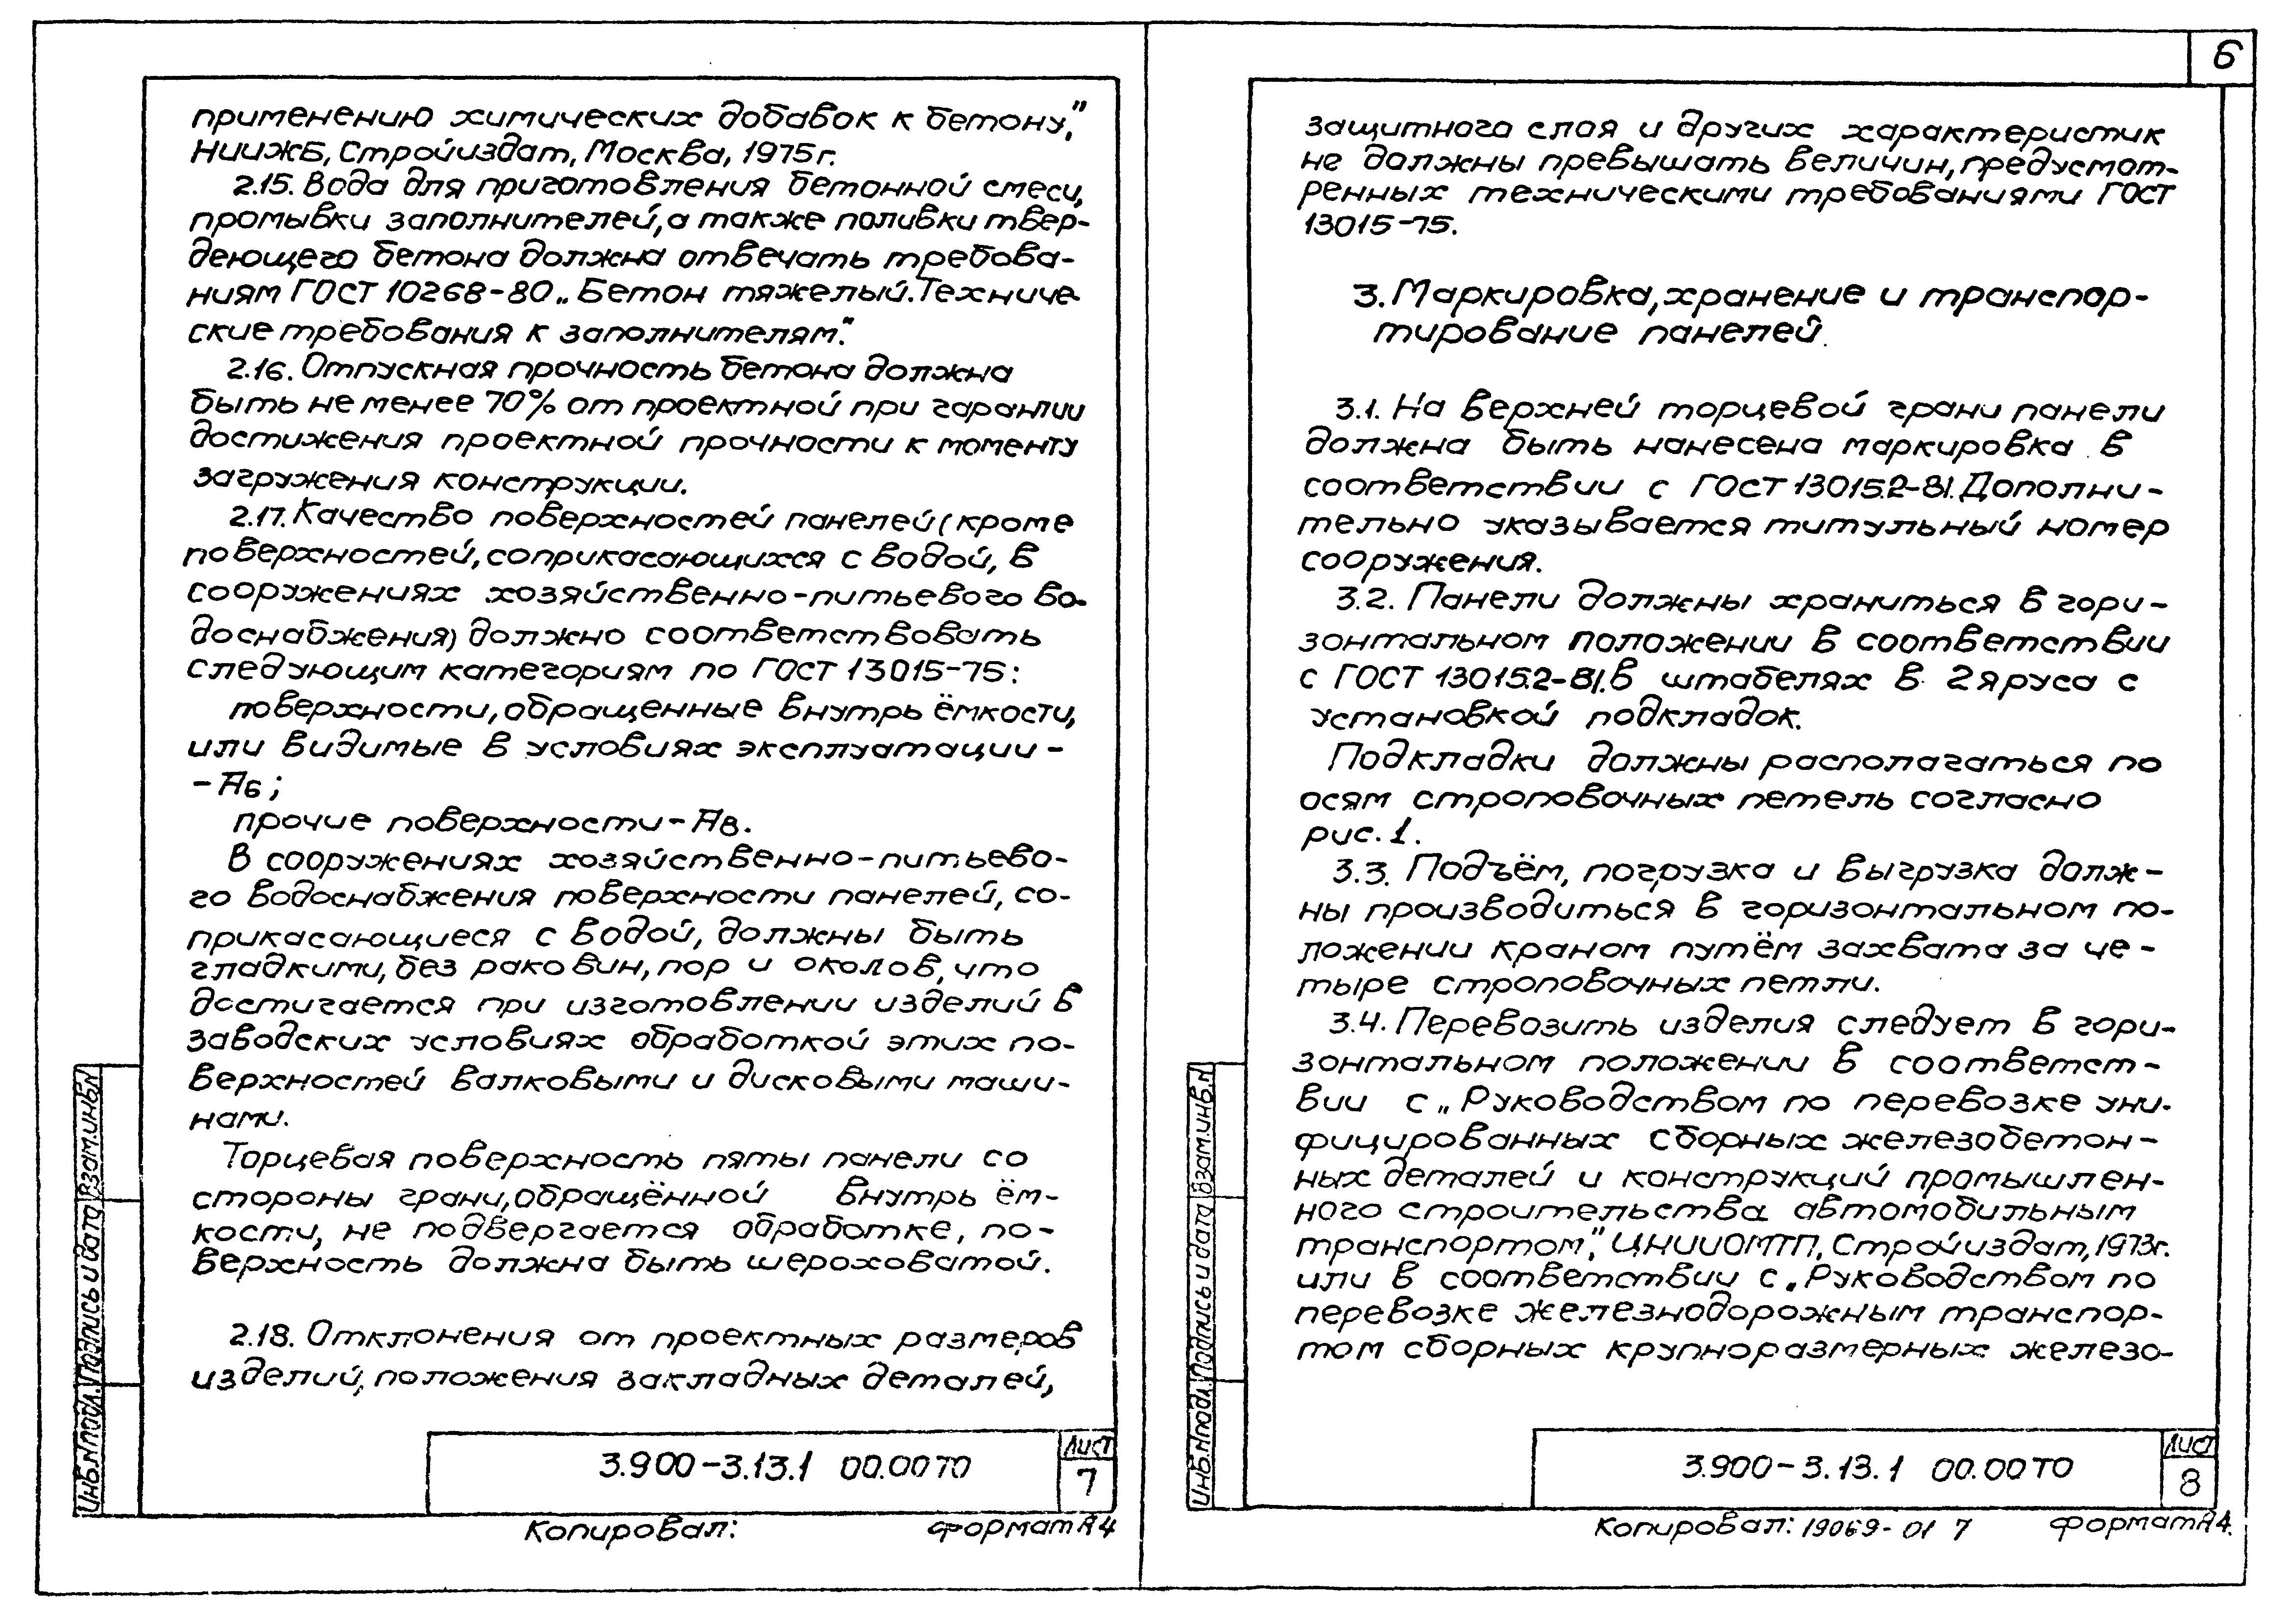 применению химических добавок к бетону",
НИИЖБ, Стройиздат, Москва, 1975г.
2.15. Вода для приготовления бетонной смеси,
промывки заполнителей, а также поливки твер-
деющего бетона должна отвечать требова-
ниям ГОСТ 10268-80 „Бетон тяжелый. Техниче-
ские требования к заполнителям".
2.16. Отпускная прочность бетона должна
быть не менее 70% от проектной при гарантии
достижения проектной прочности к моменту
загружения конструкции.
2.17. Качество поверхностей панелей (кроме
поверхностей, соприкасающихся с водой, в
сооружениях хозяйственно-питьевого во-
доснабжения) должно соответствовать
следующим категориям по ГОСТ 13015-75:
поверхности, обращенные внутрь ёмкости,
или видимые в условиях эксплуатации -
- А6;
прочие поверхности - А8.
В сооружениях хозяйственно-питьево-
го водоснабжения поверхности панелей, со-
прикасающиеся с водой, должны быть
гладкими, без раковин, пор и околов, что
достигается при изготовлении изделий в
заводских условиях обработкой этих по-
верхностей валковыми и дисковыми маши-
нами.
Торцевая поверхность пяты панели со
стороны грани, обращённой внутрь ём-
кости, не подвергается обработке, по-
верхность должна быть шероховатой.
2.18. Отклонения от проектных размеров
изделий, положения закладных деталей,
Взам.инв.N
Подпись и дата
Инв.Nподл.
3.900-3.13.1 00.00ТО
Лист
7
Копировал:
формат А4
6
защитного слоя и других характеристик
не должны превышать величин, предусмот-
ренных техническими требованиями ГОСТ
13015-75.
3. Маркировка, хранение и транспор-
тирование панелей.
3.1. На верхней торцевой грани панели
должна быть нанесена маркировка в
соответствии с ГОСТ 13015.2-81. Дополни-
тельно указывается титульный номер
сооружения.
3.2. Панели должны храниться в гори-
зонтальном положении в соответствии
с ГОСТ 13015.2-81. в штабелях в 2 яруса с
установкой подкладок.
Подкладки должны располагаться по
осям строповочных петель согласно
рис. 1.
3.3. Подъём, погрузка и выгрузка долж-
ны производиться в горизонтальном по-
ложении краном путём захвата за че-
тыре строповочных петли.
3.4. Перевозить изделия следует в гори-
зонтальном положении в соответст-
вии с „Руководством по перевозке уни-
фицированных сборных железобетон-
ных деталей и конструкций промышлен-
ного строительства автомобильным
транспортом", ЦНИИОМТП, Стройиздат, 1973г.
или в соответствии с „Руководством по
перевозке железнодорожным транспор-
том сборных крупноразмерных железо-
Взам.инв.N
Подпись и дата
Инв.Nподл.
3.900-3.13.1 00.00ТО
Лист
8
Копировал: 19069-01 7
формат А4.